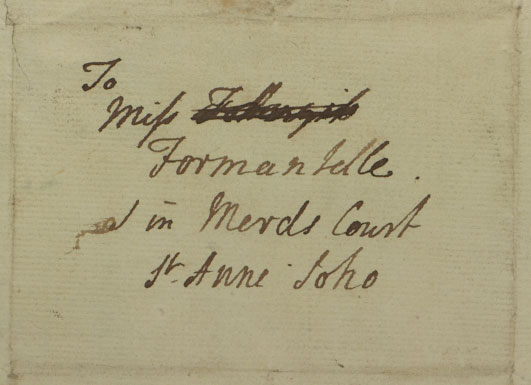 To
Miss
Formantelle.
in Merds Court
St. Anne Soho